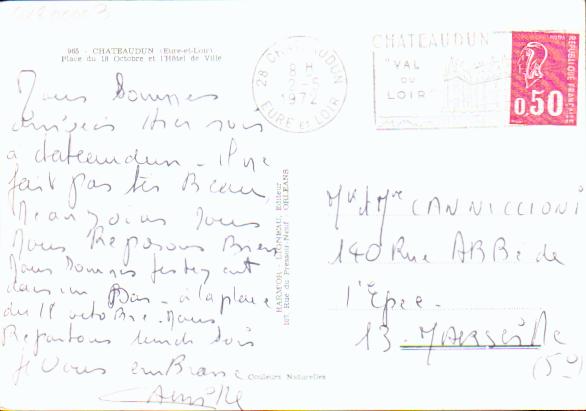 965 - CHATEAUDUN (Eure-et-Loir)
Place du 18 Octobre et l'Hôtel de Ville
Nous sommes
arrivés hier soir
a chateaudun - il ne
fait pas très Beau
Neanmoins Nous
Nous Reposons Bien
Nous sommes
dans un Bar - a la place
du 18 octobre. Nous
Repartons lundi soir
Je Vous embrasse
Couleurs Naturelles
HARMOR-, Editeur
107, Rue du Pressoir-Neuf - ORLEANS
28 CHATEAUDUN
8 H
1972
EURE et LOIR
CHATEAUDUN
"VAL
DU
LOIR"
REPUBLIQUE FRANÇAISE
0,50
Mr et Mme CANNICCIONI
140 Rue ABBé de
l'Epee -
13 - MARSEILLE
(5°)